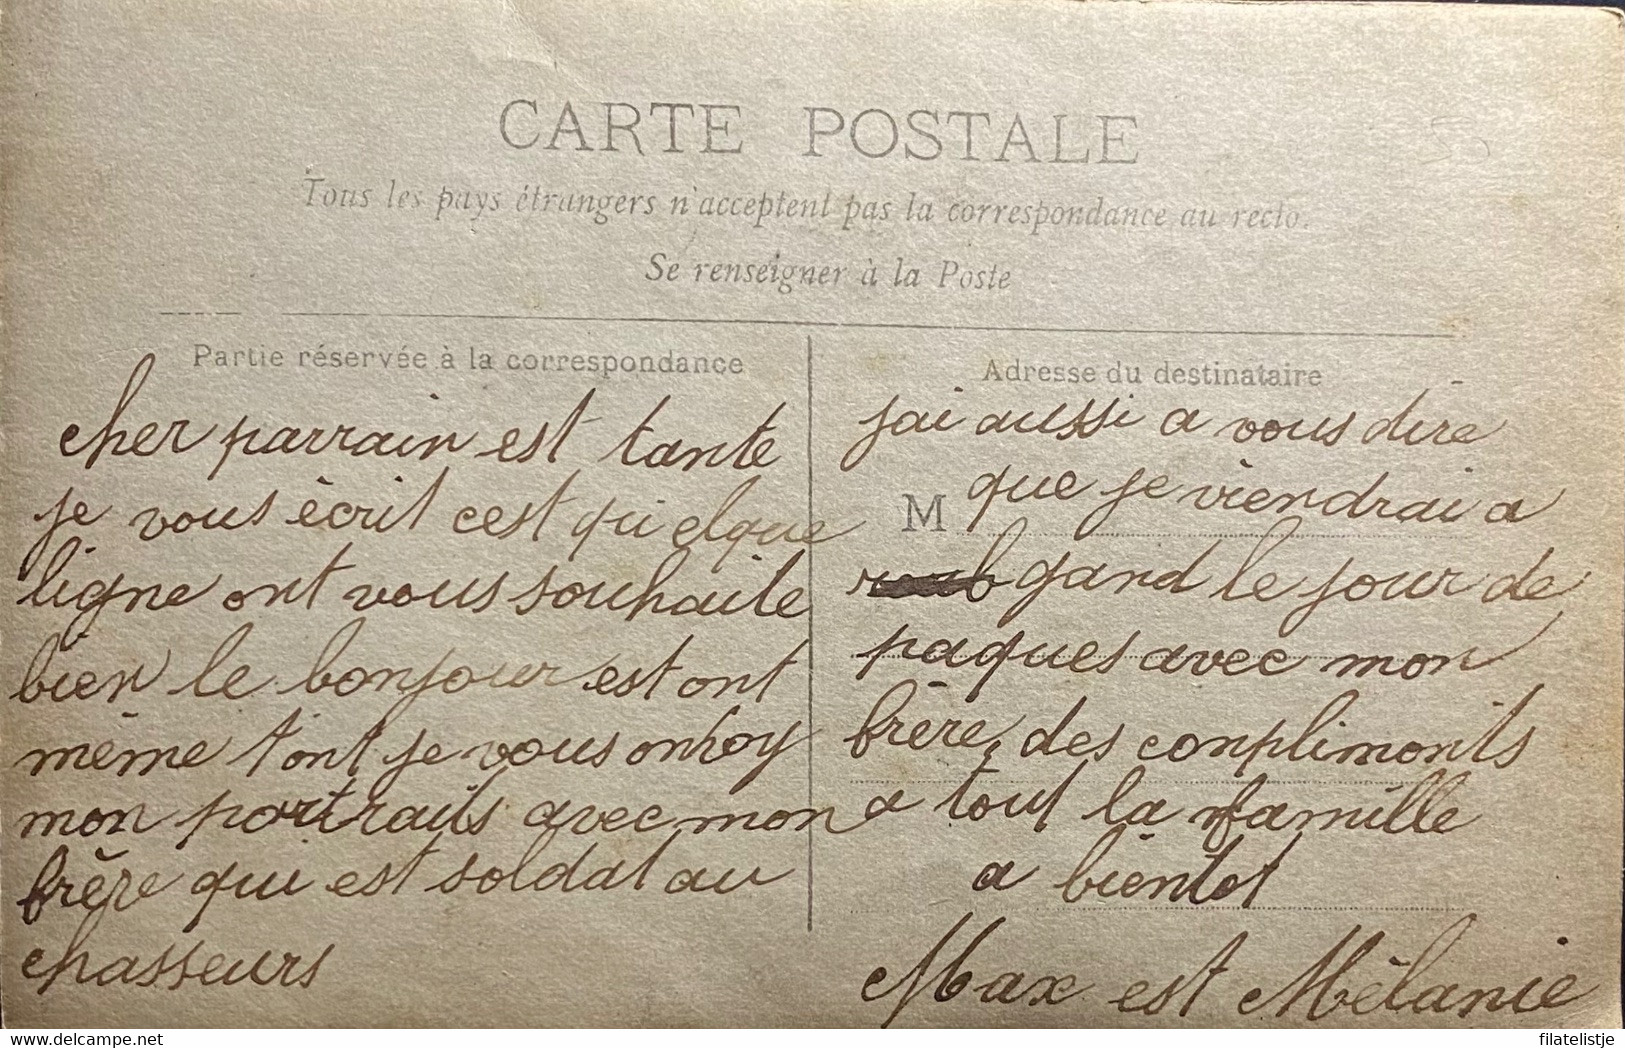 CARTE POSTALE
Tous les pays étrangers n'acceptent pas la correspondance au recto.
Se renseigner à la Poste
Partie réservée à la correspondance
cher parrain est tante
je vous écrit cest qui elque
ligne ont vous souhaite
bien le bonjour est ont
même tont je vous onvoy
mon portraits avec mon
frère qui est soldat au
chasseurs
Adresse du destinataire
jai aussi a vous dire
M que je viendrai a
gand le jour de
paques avec mon
frère, des complimonts
a tout la famille
a bientot
Max est Mélanie
filatelistje